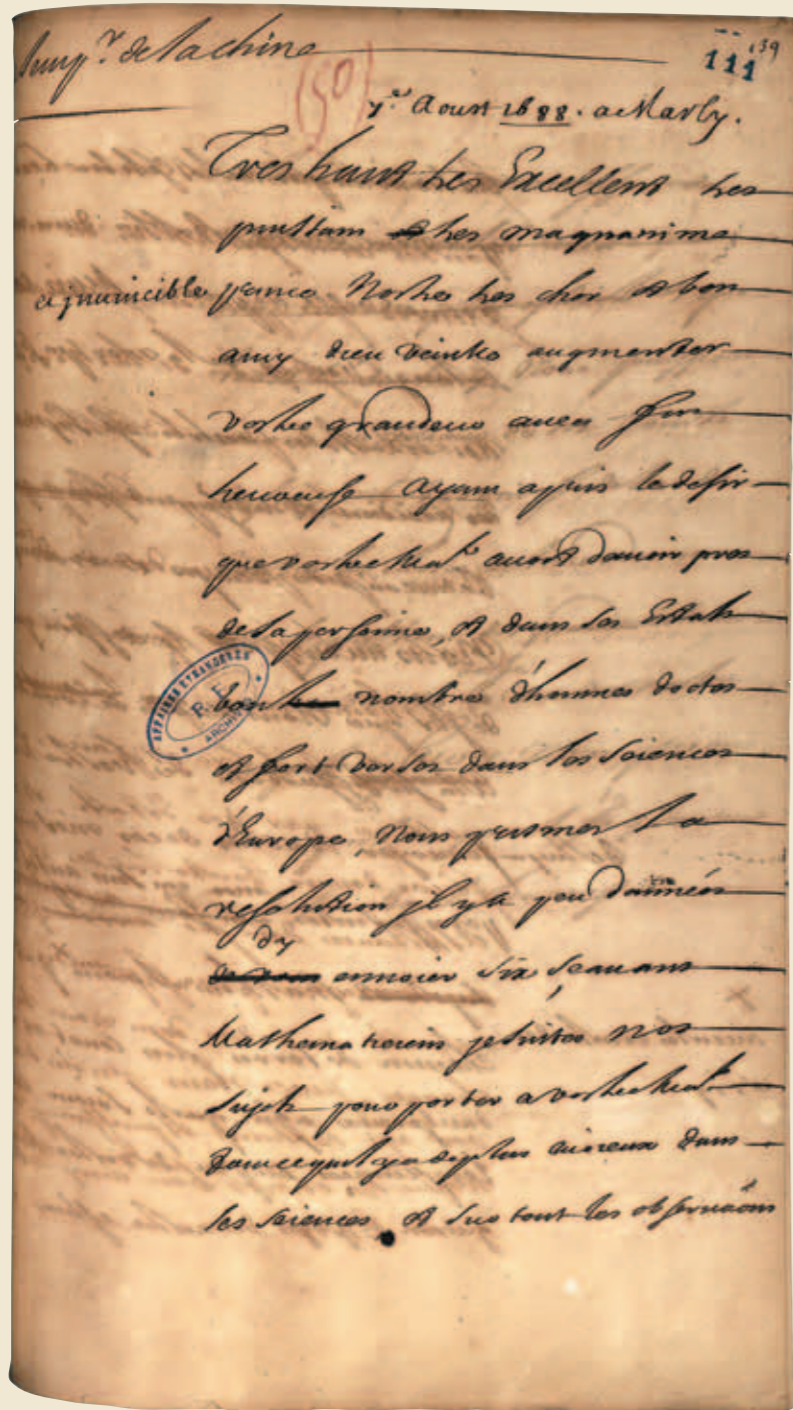 Emp.r de la chine
139
111
(50)
7.e Aoust 1688. a Marly.
Tres haut tres Excellent tres
puissant et tres magnanime
et jnuincible prince Nostre tres cher et bon
amy dieu veüille augmenter
vostre grandeur auec fin
heureuse Ayant apris le desir
que vostre Ma.té auoit d'auoir pres
de sa personne, et dans ses Estats
bon nombre d'hommes doctes
et fort versés dans les sciences
d'Europe, Nous prismes la
resolution jl y a peu d'années
d'y
enuoier six sçauans
Mathematiciens jesuites nos
sujets pour porter a vostre Ma.té
tout ce qu'il y a de plus curieux dans
les sciences, et sur tout les obseruaõns
AFFAIRES ETRANGERES
R. F.
ARCHIVES